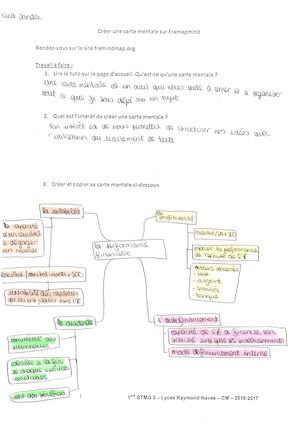 Créer une carte mentale sur Framapmind
Rendez-vous sur le site framindmap.org
Travail à faire :
1. Lire le tuto sur la page d'accueil. Qu'est-ce qu'une carte mentale ?
Une carte mentale est un outil qui nous aide à and et à organiser
tout ce que je sais déjà sur un sujet
2. Quel est l'intérêt de créer une carte mentale ?
Son intérêt est de nous permettre de structurer nos idées avec
l'utilisation du traitement de texte
3. Créer et copier sa carte mentale ci-dessous
la rentabilité
la capacité
d'un capital
à dégager un
revenu
résultat / capital investi x 100
la performance
financière
la
profitabilité
résultat/CA x 100
mesure la performance
de l'activité de l'E
acteurs concernés
- état
- dirigeant
- salariés
- banque
le dividende
rémunération des
actionnaires
versé à la fin
de chaque exercice
comptable
part des bénéfices
l'autofinancement
capacité de l'E à financer son
activité ainsi que ses investissements
mode de financement interne
1ère STMG 3 – Lycée Raymond Naves – CM – 2016-2017